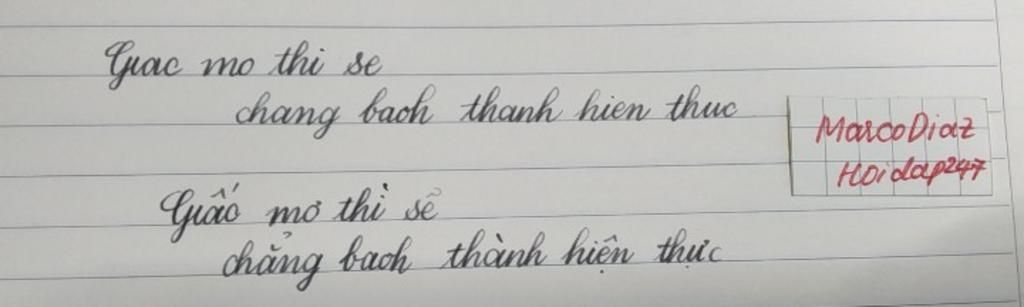 Giac mo thi se
chang bach thanh hien thuc
MarcoDiaz
Hoidap247
Giấc mơ thì sẽ
chẳng bach thành hiện thực